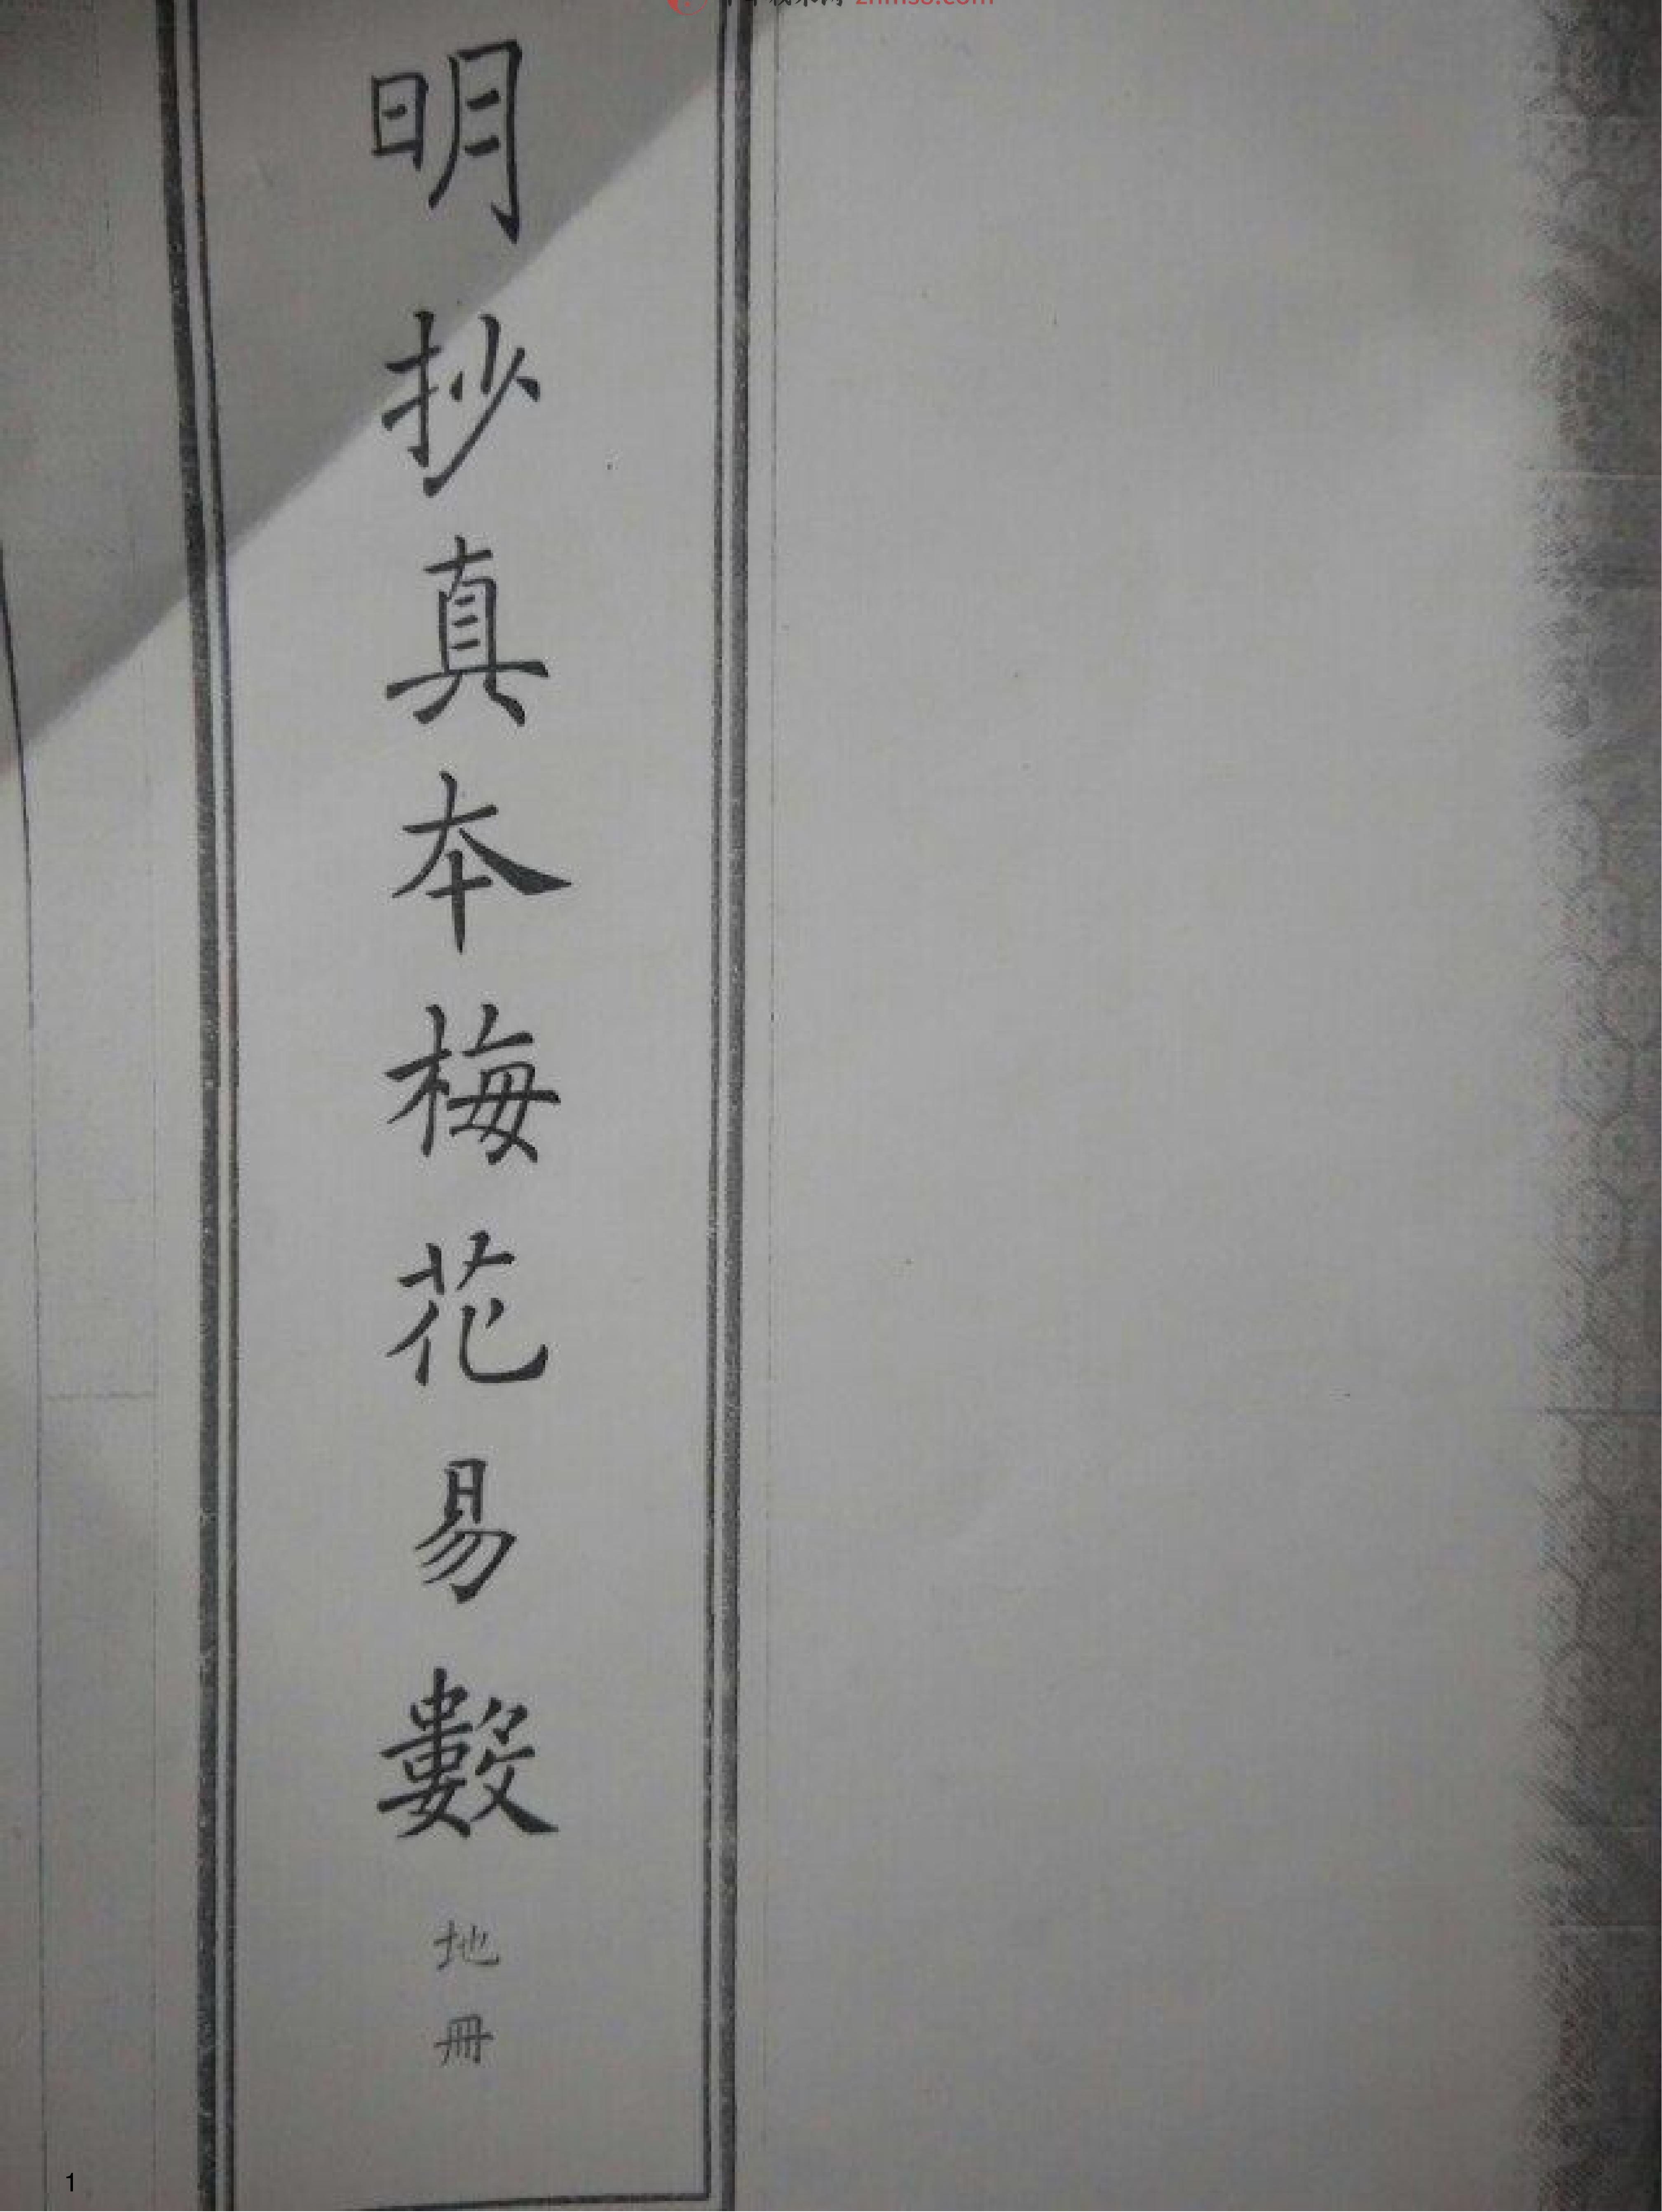 znmso.com
明抄真本梅花易數
地冊
1